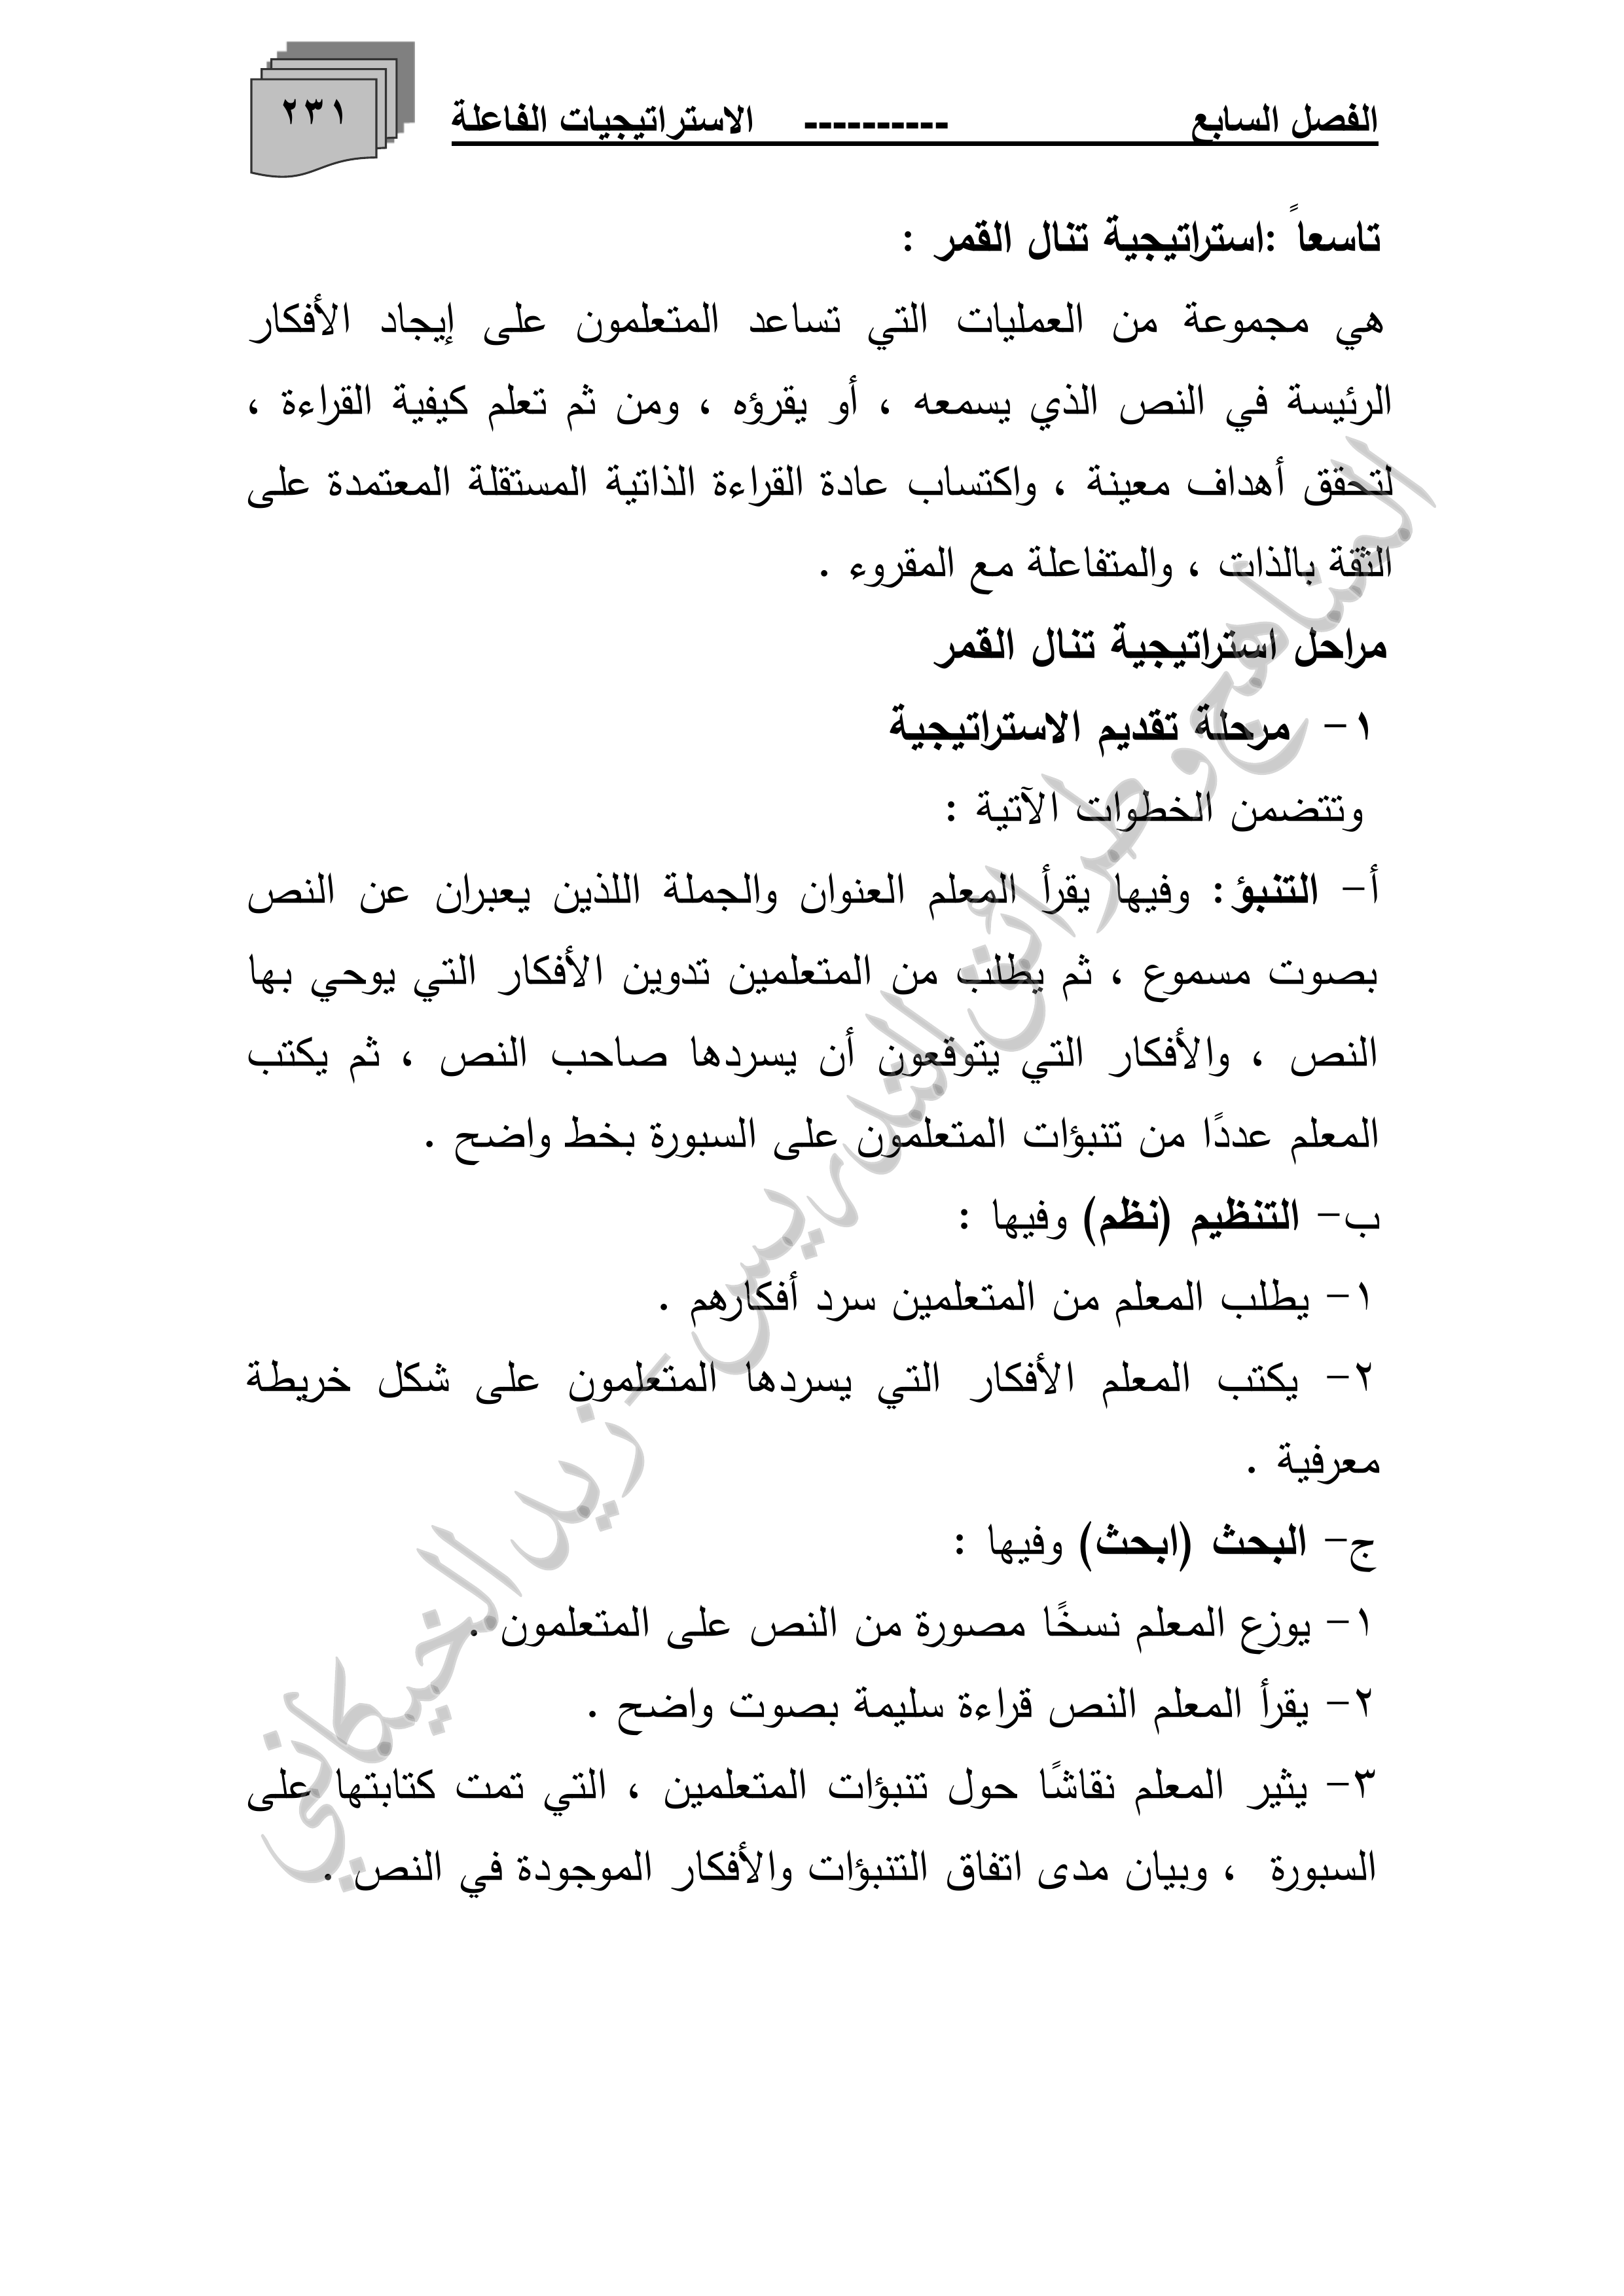 الفصل السابع ---------- الاستراتيجيات الفاعلة
٢٣١
تاسعاً :استراتيجية تنال القمر :
هي مجموعة من العمليات التي تساعد المتعلمون على إيجاد الأفكار
الرئيسة في النص الذي يسمعه ، أو يقرؤه ، ومن ثم تعلم كيفية القراءة ،
لتحقق أهداف معينة ، واكتساب عادة القراءة الذاتية المستقلة المعتمدة على
الثقة بالذات ، والمتفاعلة مع المقروء .
مراحل استراتيجية تنال القمر
١- مرحلة تقديم الاستراتيجية
وتتضمن الخطوات الآتية :
أ- التنبؤ: وفيها يقرأ المعلم العنوان والجملة اللذين يعبران عن النص
بصوت مسموع ، ثم يطلب من المتعلمين تدوين الأفكار التي يوحي بها
النص ، والأفكار التي يتوقعون أن يسردها صاحب النص ، ثم يكتب
المعلم عددًا من تنبؤات المتعلمون على السبورة بخط واضح .
ب- التنظيم (نظم) وفيها :
١- يطلب المعلم من المتعلمين سرد أفكارهم .
٢- يكتب المعلم الأفكار التي يسردها المتعلمون على شكل خريطة
معرفية .
ج- البحث (ابحث) وفيها :
١- يوزع المعلم نسخًا مصورة من النص على المتعلمون .
٢- يقرأ المعلم النص قراءة سليمة بصوت واضح .
٣- يثير المعلم نقاشًا حول تنبؤات المتعلمين ، التي تمت كتابتها على
السبورة ، وبيان مدى اتفاق التنبؤات والأفكار الموجودة في النص .
المناهج وطرائق التدريس - زيد الخيكاني